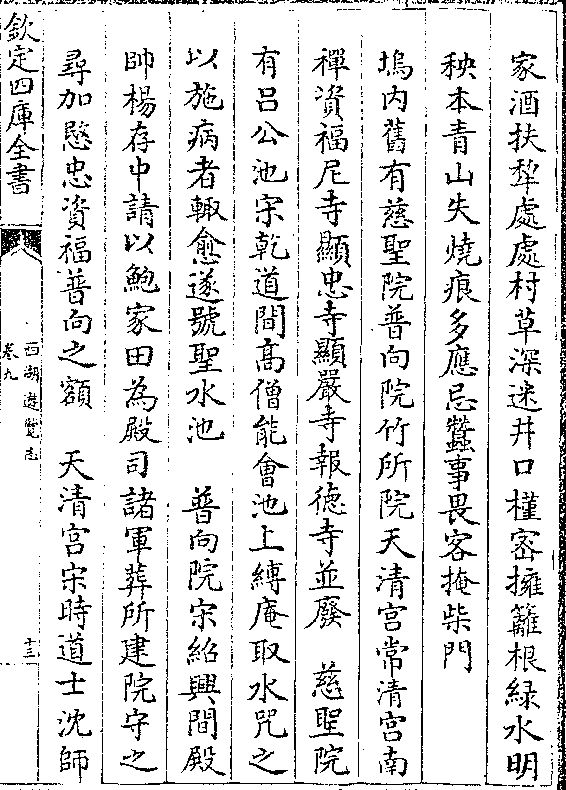 家酒扶犂處處村草深迷井口槿宻擁籬根緑水明
秧本青山失燒痕多應忌蠶事畏客掩柴門
塢内舊有慈聖院普向院竹所院天清宫常清宫南
禪資福尼寺顯忠寺顯嚴寺報徳寺並廢　慈聖院
有吕公池宋乾道間髙僧能會池上縛庵取水咒之
以施病者輙愈遂號聖水池　普向院宋紹興間殿
帥楊存中請以鮑家田為殿司諸軍葬所建院守之
尋加愍忠資福普向之額　天清宫宋時道士沈師
欽定四庫全書
西湖遊覽志
卷九
十三